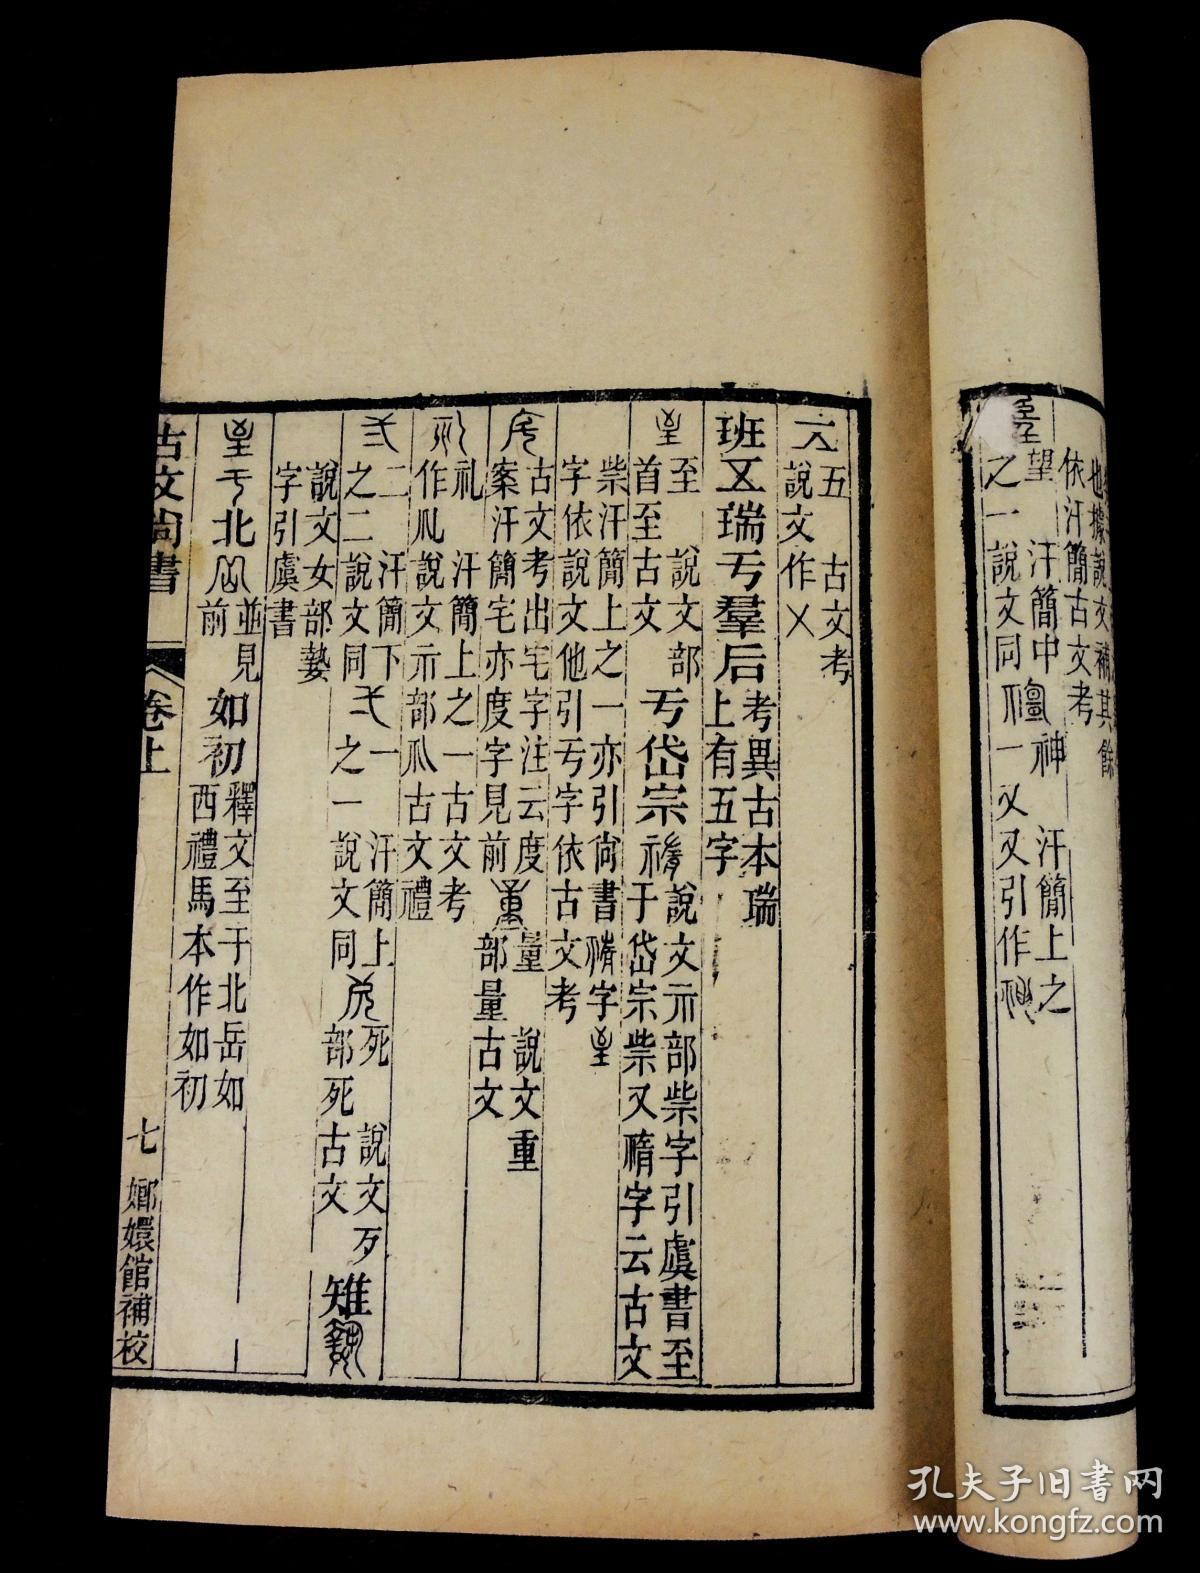 也據說文補其餘
依汗簡古文考
望 汗簡中 神 汗簡上之
之一說文同 一又又引作
五 古文考
說文作㐅
班五瑞亐羣后 考異古本瑞
上有五字
至 說文部
首至古文
亐岱宗
說文示部祡字引虞書至
于岱宗祡又𥛱字云古文
祡汗簡上之一亦引尚書𥛱字
字依說文他引亐字依古文考
古文考出宅字注云度
案汗簡宅亦度字見前
量 說文重
部量古文
礼 汗簡上之一古文考
作 說文示部 古文禮
弍 二 汗簡下
之二說文同
弌 一 汗簡上
之一說文同
死 說文歹
部死古文
雉
說文女部㜎
字引虞書
北
並見
前
如初
釋文至于北岳如
西禮馬本作如初
古文尚書 卷上 七 嫏嬛館補校
孔夫子旧书网
www.kongfz.com